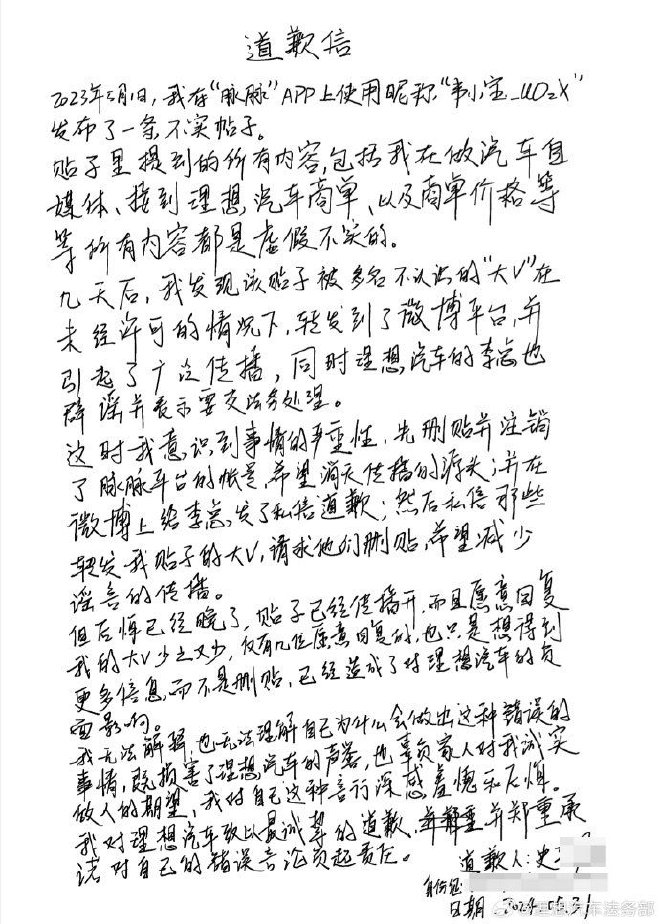 道歉信
2023年5月1日,我在“脉脉”APP上使用昵称“韦小宝_UOzX”
发布了一条不实帖子。
贴子里提到的所有内容,包括我在做汽车自
媒体、接到理想汽车商单、以及商单价格等
等所有内容都是虚假不实的。
九天后,我发现该贴子被多名不认识的“大V”在
未经许可的情况下,转发到了微博平台,并
引起了广泛传播,同时理想汽车的李总也
辟谣并表示要交法务处理。
这时我意识到事情的严重性,先删贴并注销
了脉脉平台的账号,希望消灭传播的源头;并在
微博上给李总发了私信道歉;然后私信那些
转发我贴子的大V,请求他们删贴,希望减少
谣言的传播。
但后悔已经晚了,贴子已经传播开,而且愿意回复
我的大V少之又少,仅有几位愿意回复的,也只是想得到
更多信息,而不是删贴,已经造成了对理想汽车的负
面影响。
我无法解释,也无法理解自己为什么会做出这种错误的
事情,既损害了理想汽车的声誉,也辜负家人对我诚实
做人的期望,我对自己这种言行深感羞愧和后悔。
我对理想汽车致以最诚挚的道歉,并郑重承
诺对自己的错误言论负起责任。
道歉人:史
身份证:
日期:2024.05.31
@理想汽车法务部